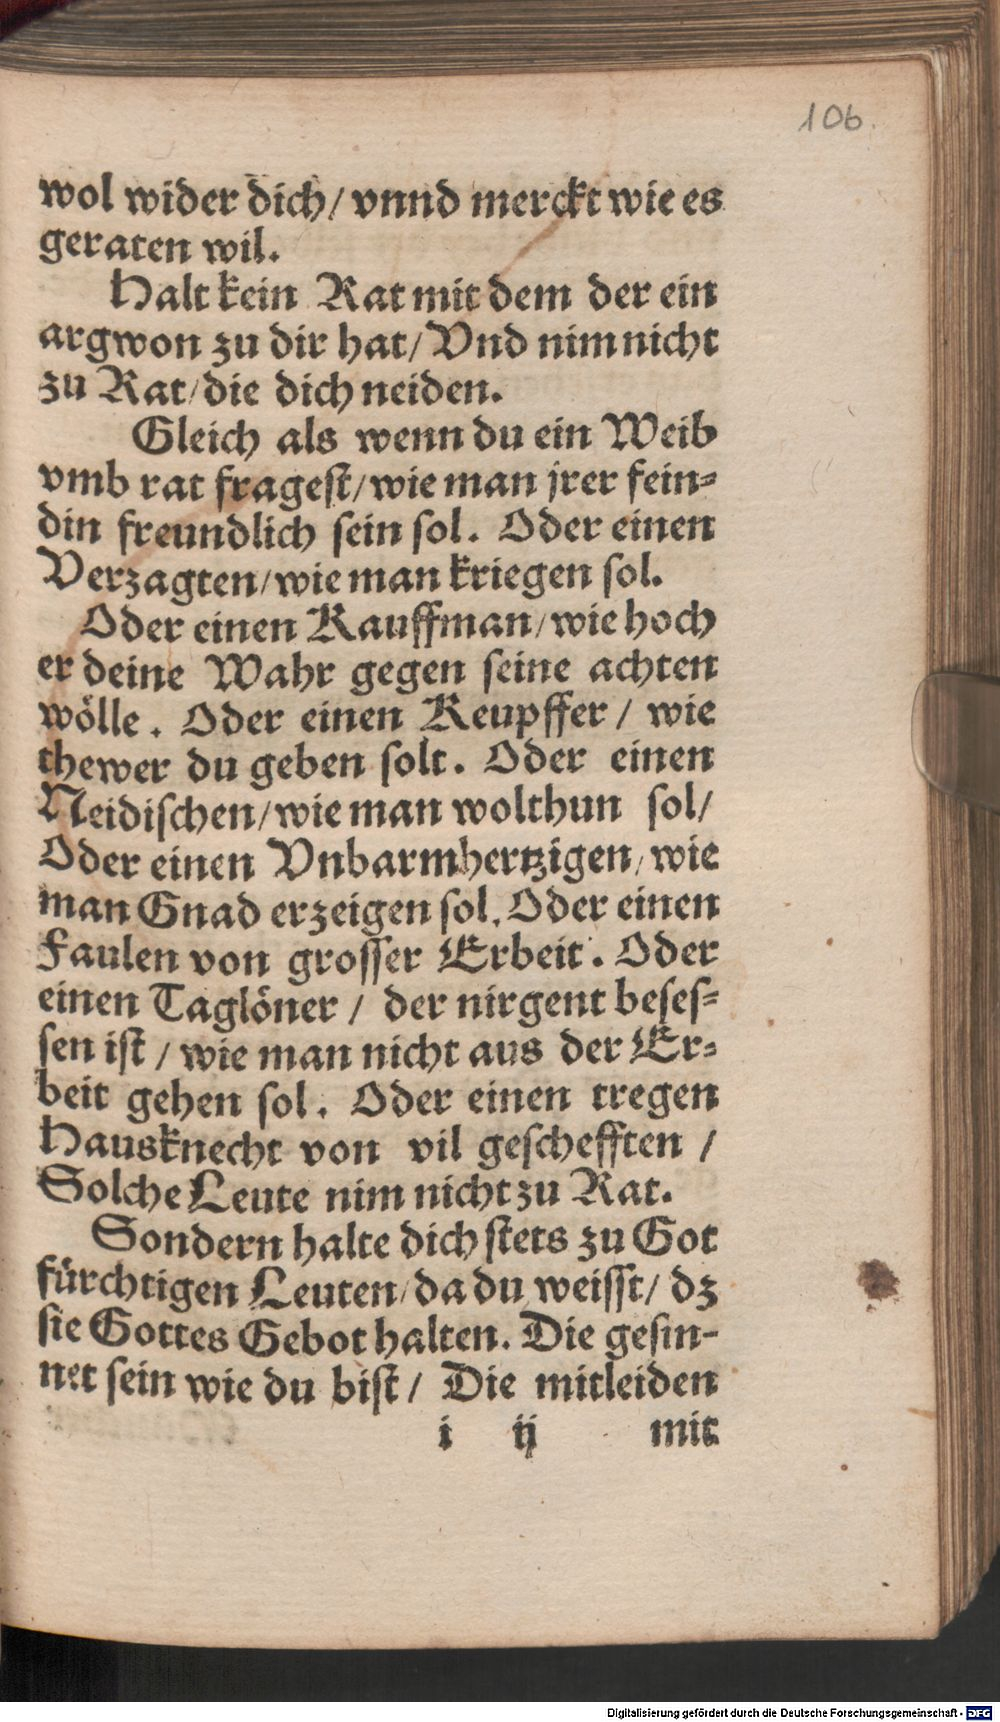 106.
wol wider dich/ vnnd merckt wie es
geraten wil.
Halt kein Rat mit dem der ein
argwon zu dir hat/ Vnd nim nicht
zu Rat/ die dich neiden.
Gleich als wenn du ein Weib
vmb rat fragest/ wie man jrer fein⸗
din freundlich sein sol. Oder einen
Verzagten/ wie man kriegen sol.
Oder einen Kauffman/ wie hoch
er deine Wahr gegen seine achten
wölle. Oder einen Keupffer/ wie
thewer du geben solt. Oder einen
Neidischen/ wie man wolthun sol/
Oder einen Vnbarmhertzigen/ wie
man Gnad erzeigen sol. Oder einen
Faulen von grosser Erbeit. Oder
einen Taglöner / der nirgent beses⸗
sen ist / wie man nicht aus der Er⸗
beit gehen sol. Oder einen tregen
Hausknecht von vil geschefften /
Solche Leute nim nicht zu Rat.
Sondern halte dich stets zu Got
fürchtigen Leuten/ da du weisst/ dz
sie Gottes Gebot halten. Die gesin-
net sein wie du bist/ Die mitleiden
i ij mit
Digitalisierung gefördert durch die Deutsche Forschungsgemeinschaft - DFG